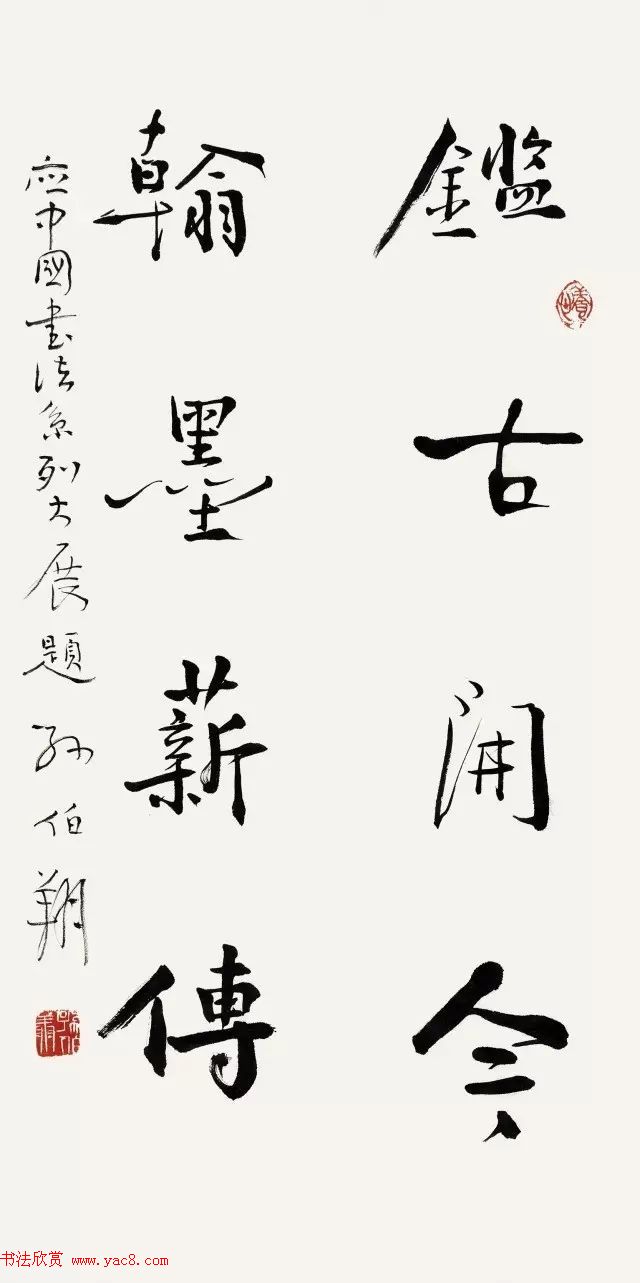 鑑古開今
翰墨薪傳
應中國書法系列大展題 孫伯翔
书法欣赏 www.yac8.com